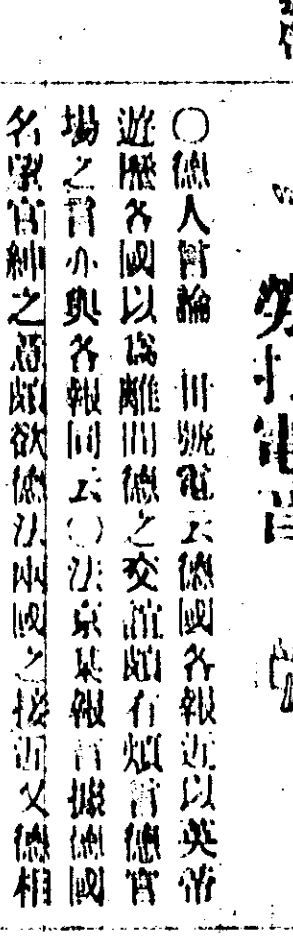 勞打電音
○德人實論　卅號電云德國各報近以英帝
遊歷各國以為離間德之交誼頗有煩言德官
場之言亦與各報同云○法京某報言據德國
名望官紳之意頗欲德法兩國之接近又德相